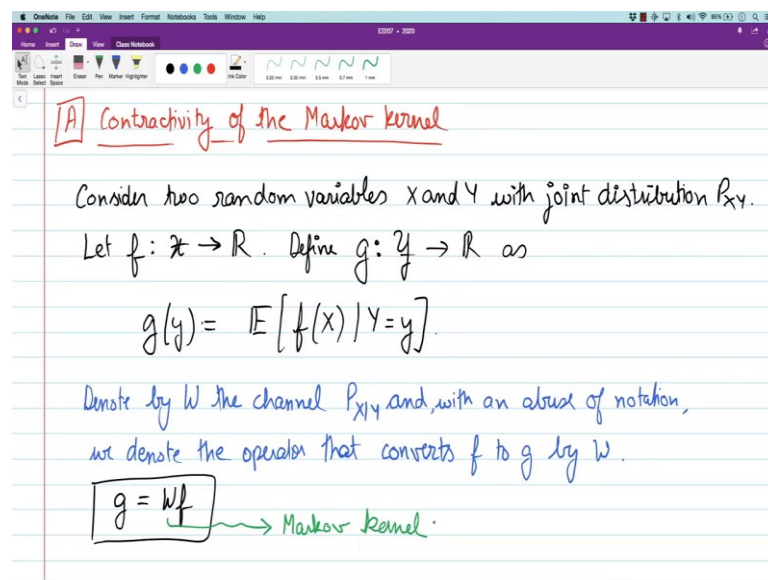 OneNote File Edit View Insert Format Notebooks Tools Window Help
E2207 • 2020
Home Insert Draw View Class Notebook
Text Mode Lasso Select Insert Space Eraser Pen Marker Highlighter Ink Color 0.25 mm 0.35 mm 0.5 mm 0.7 mm 1 mm
A Contractivity of the Markov kernel
Consider two random variables X and Y with joint distribution P_XY.
Let f : 𝒳 → ℝ. Define g : 𝒴 → ℝ as
g(y) = 𝔼[f(X) | Y=y].
Denote by W the channel P_X|Y and, with an abuse of notation,
we denote the operator that converts f to g by W.
g = Wf → Markov kernel.